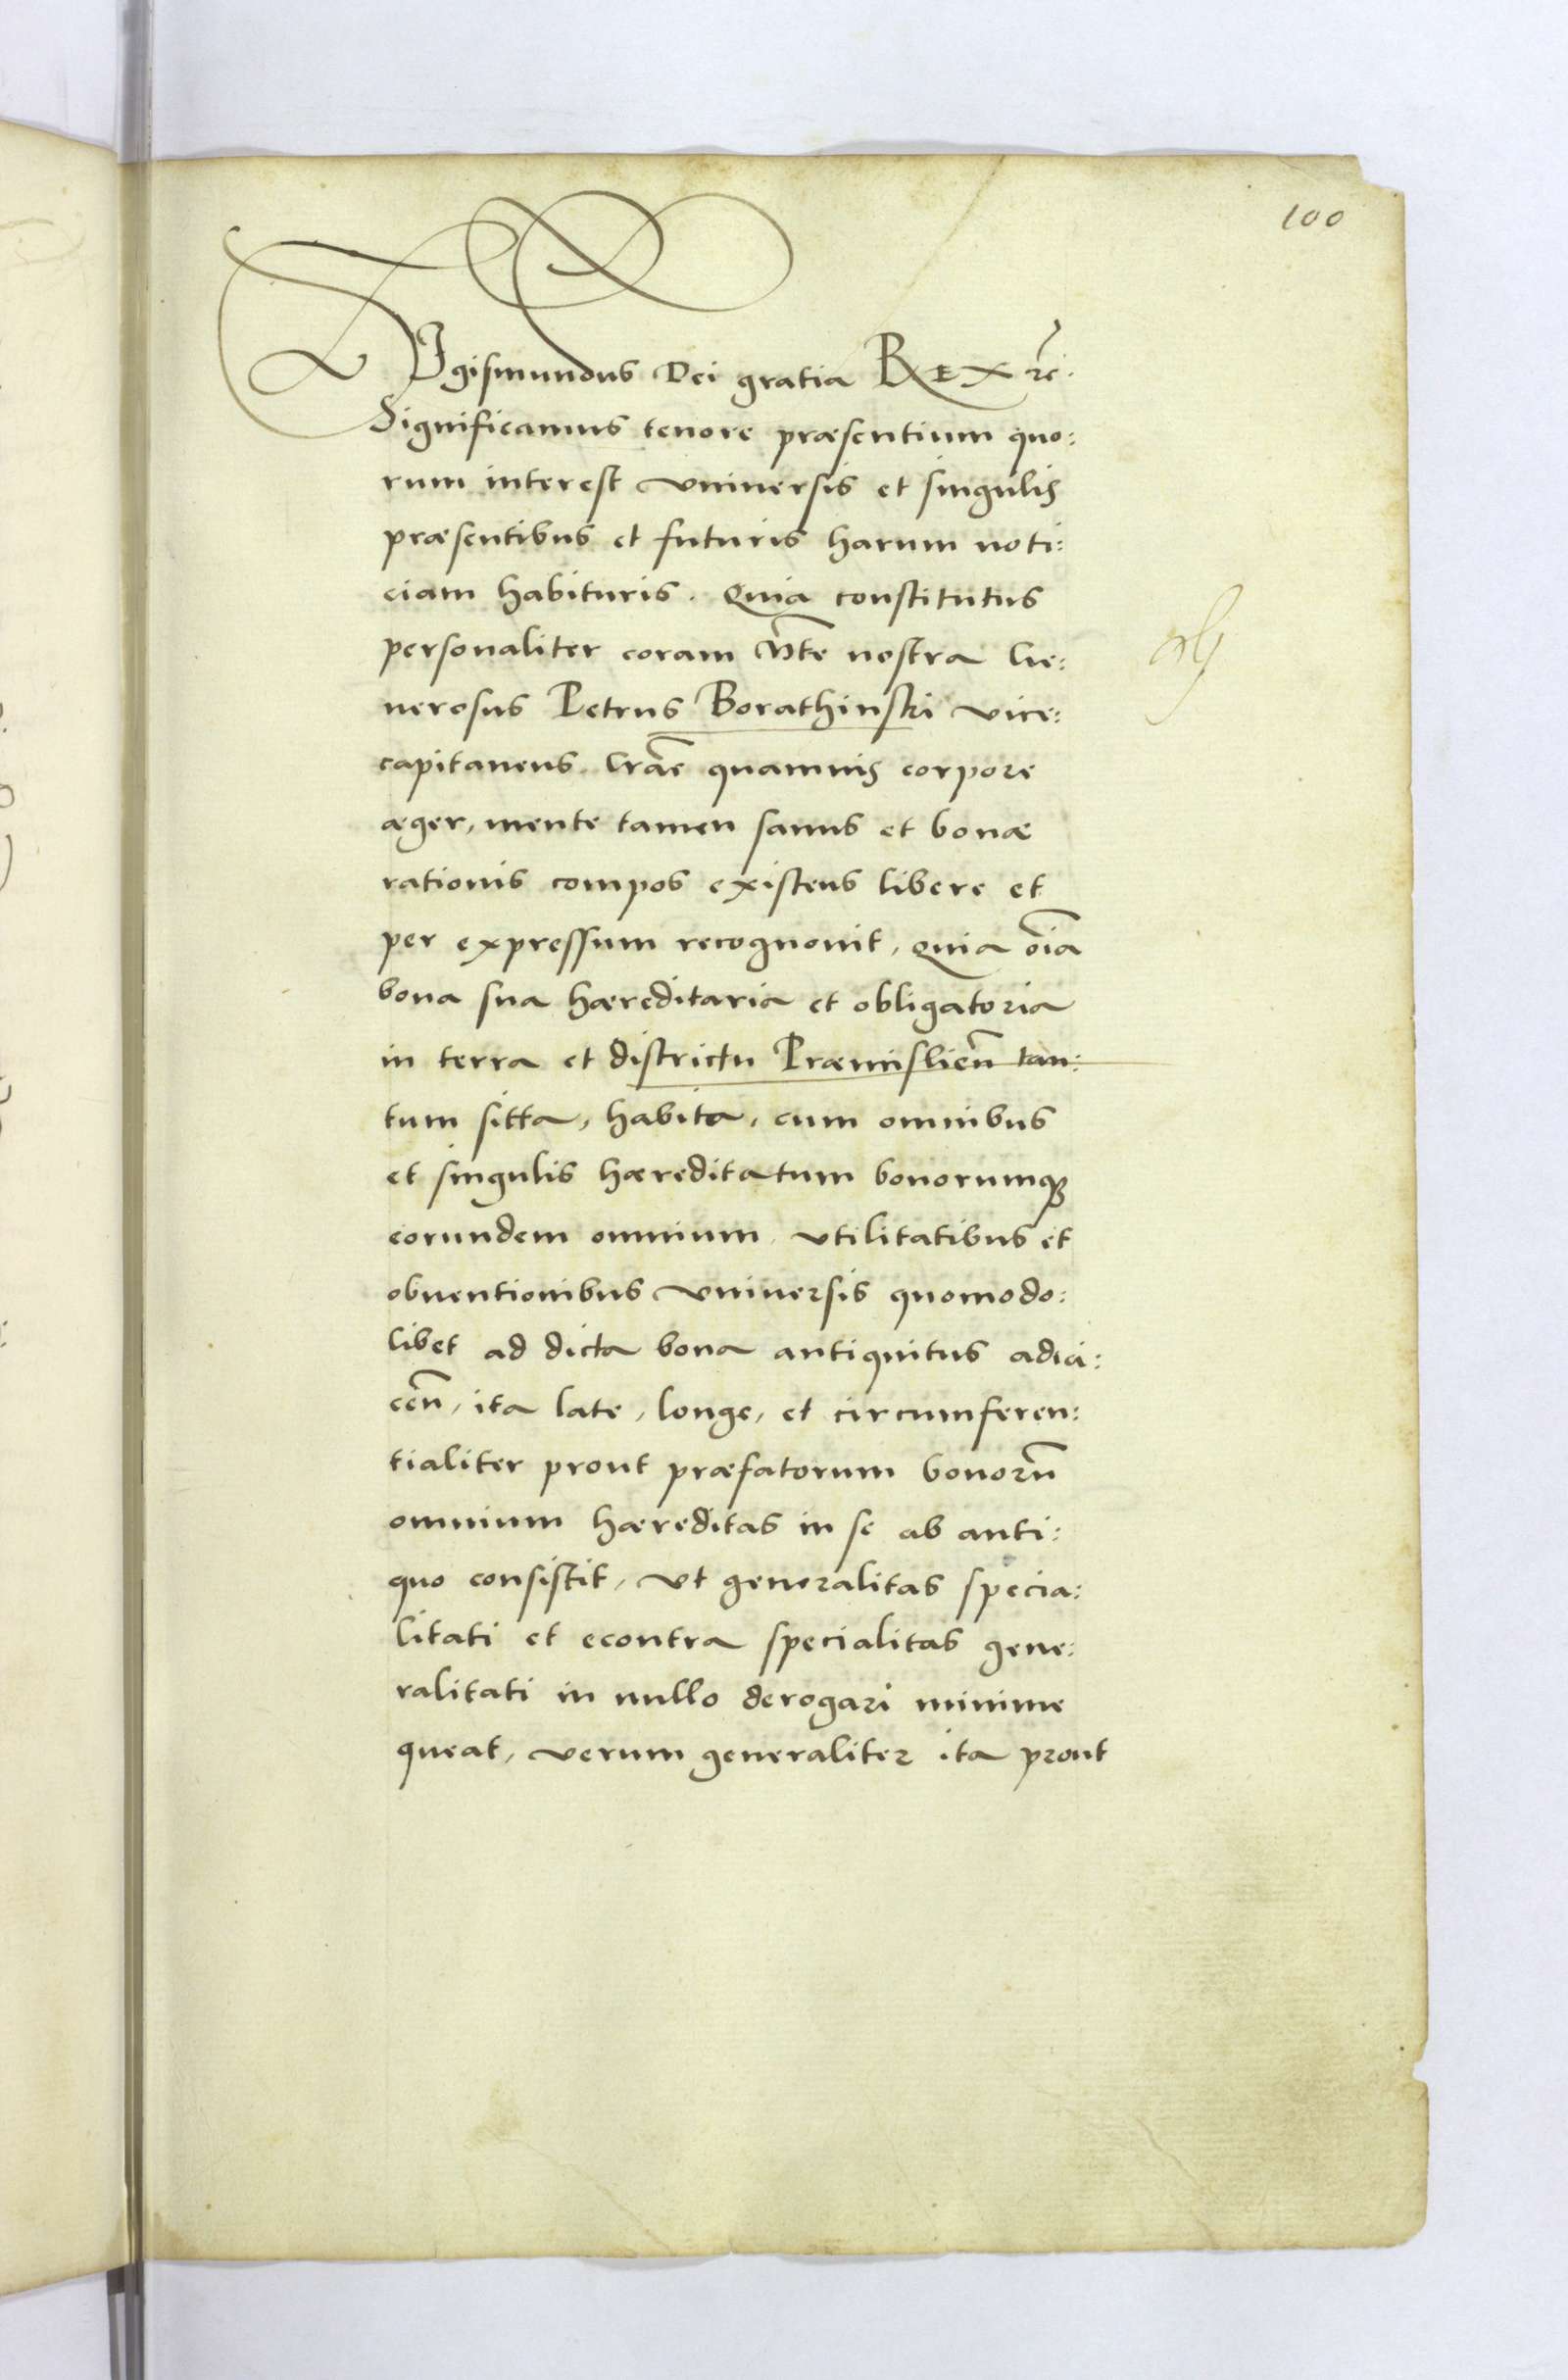 100
SIgismundus Dei gratia REX etc̃.
Significamus tenore præsentium quo:
rum interest vniuersis et singulis
præsentibus et futuris harum noti:
ciam habituris. Quia constitutus
personaliter coram M̃te nostra Ge:
nerosus Petrus Borathinski vice:
capitaneus Crãc quamuis corpore
æger, mente tamen sanus et bonæ
rationis compos existens libere et
per expressum recognouit, quia oĩa
bona sua hæreditaria et obligatoria
in terra et districtu Præmislieñ tan:
tum sitta, habita, cum omnibus
et singulis hæreditatum bonorumqꝫ
eorundem omnium vtilitatibus et
obuentionibus vniuersis quomodo:
libet ad dicta bona antiquitus adia:
ceñ, ita late, longe, et circumferen:
tialiter prout præfatorum bonorũ
omnium hæreditas in se ab anti:
quo consistit, vt generalitas specia:
litati et econtra specialitas gene:
ralitati in nullo derogari minime
queat, verum generaliter ita prout